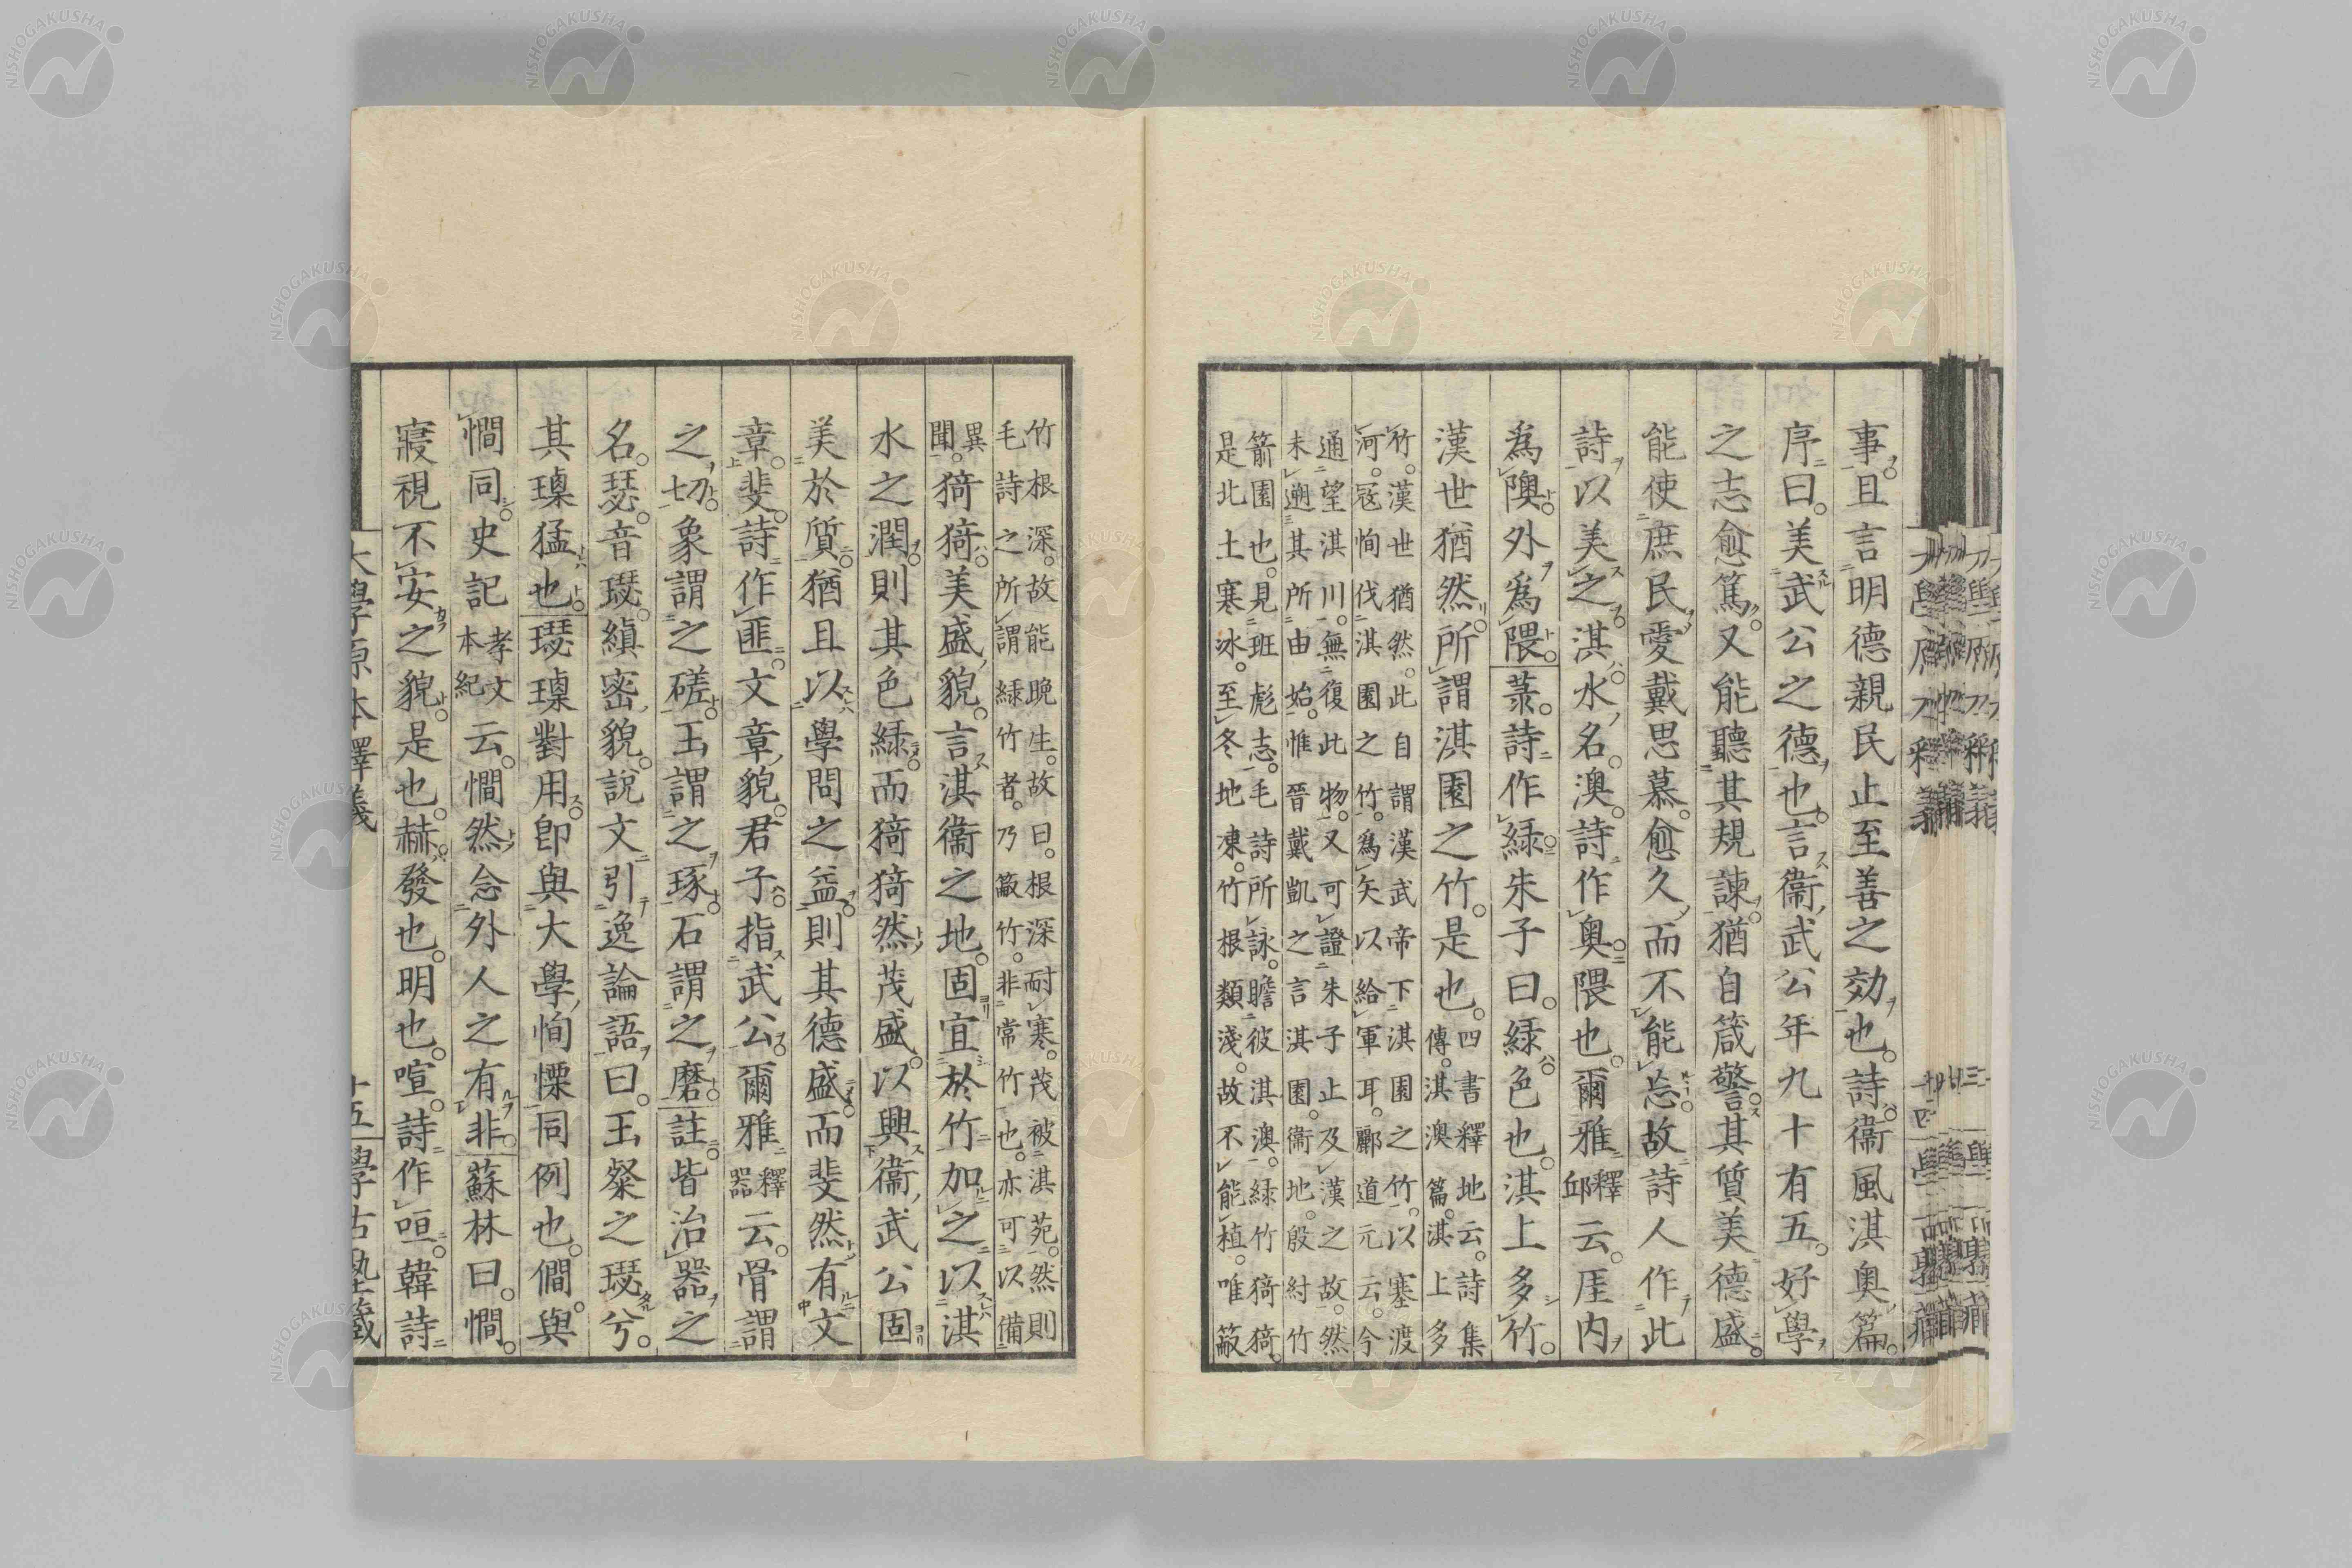 事。且言明德親民止至善之効也。詩衞風淇奥篇。
序曰。美武公之德也。言衞武公年九十有五。好學
之志愈篤。又能聽其規諫。猶自箴警。其質美德盛。
能使庶民愛戴思慕。愈久而不能忘。故詩人作此
詩以美之。淇水名。澳。詩作奥。隈也。爾雅釋邱云。厓内
爲隩。外爲隈。菉。詩作綠。朱子曰。綠色也。淇上多竹。
漢世猶然。所謂淇園之竹。是也。四書釋地云。詩集
傳。淇澳篇。淇上多
竹。漢世猶然。此自謂漢武帝下淇園之竹。以塞渡
河。冦恂伐淇園之竹。爲矢以給軍耳。酈道元云。今
通望淇川。無復此物。又可證朱子止及漢之故。然
未遡其所由始。惟晉戴凱之言淇園。衞地。殷紂竹
箭園也。見班彪志。毛詩所詠。瞻彼淇澳。綠竹猗猗。
是北土寒冰。至冬地凍。竹根類淺。故不能植。唯箙
竹根深。故能晩生。故曰。根深耐寒。茂被淇苑。然則
毛詩之所謂綠竹者。乃箙竹。非常竹也。亦可以備
異
聞。猗猗。美盛貌。言淇衞之地。固宜於竹。加之以淇
水之潤。則其色綠。而猗猗然茂盛。以興衞武公固
美於質。猶且以學問之益。則其德盛。而斐然有文
章。斐。詩作匪。文章貌。君子。指武公。爾雅釋器云。骨謂
之切。象謂之磋。玉謂之琢。石謂之磨。註。皆治器之
名。瑟。音璱。縝密貌。說文引逸論語曰。玉粲之璱兮。
其瑮猛也。璱瑮對用。卽與大學恂慄同例也。僩與
憪同。史記孝文本紀云。憪然念外人之有非。蘇林曰。憪。
寢視不安之貌。是也。赫。發也。明也。喧。詩作咺。韓詩
大學原本釋義
十五
學古塾藏
NISHOGAKUSHA